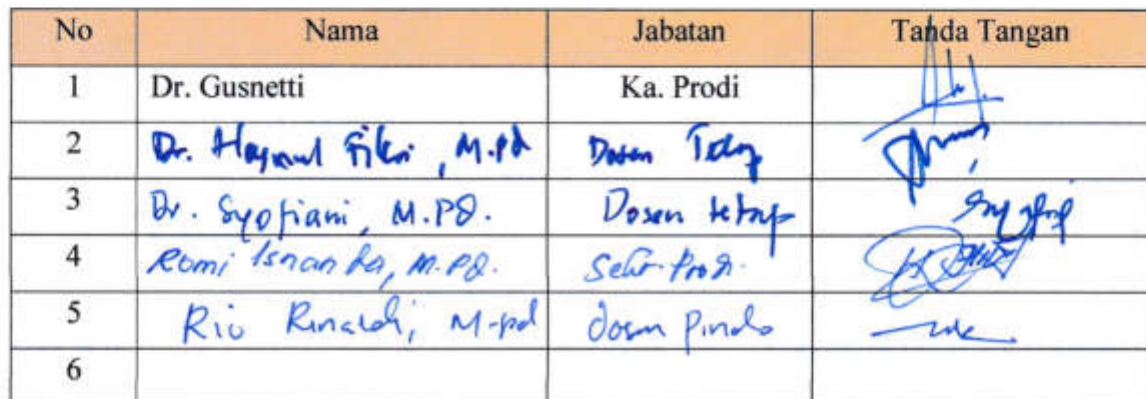 No Nama Jabatan Tanda Tangan
1 Dr. Gusnetti Ka. Prodi
2 Dr. Fikri, M.Pd Dosen Tetap
3 Dr. Syofiani, M.Pd. Dosen tetap
4 Romi Isnanda, M.Pd. Sekr. Prodi.
5 Rio Rinaldi, M.pd dosen
6